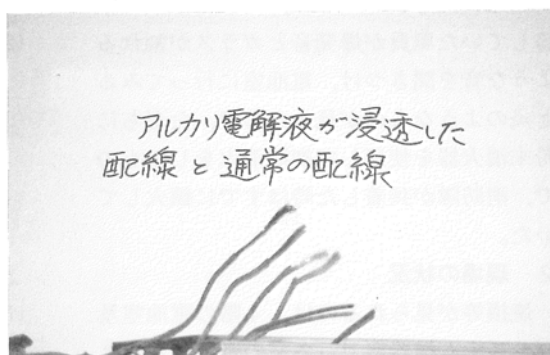 アルカリ電解液が浸透した
配線と通常の配線